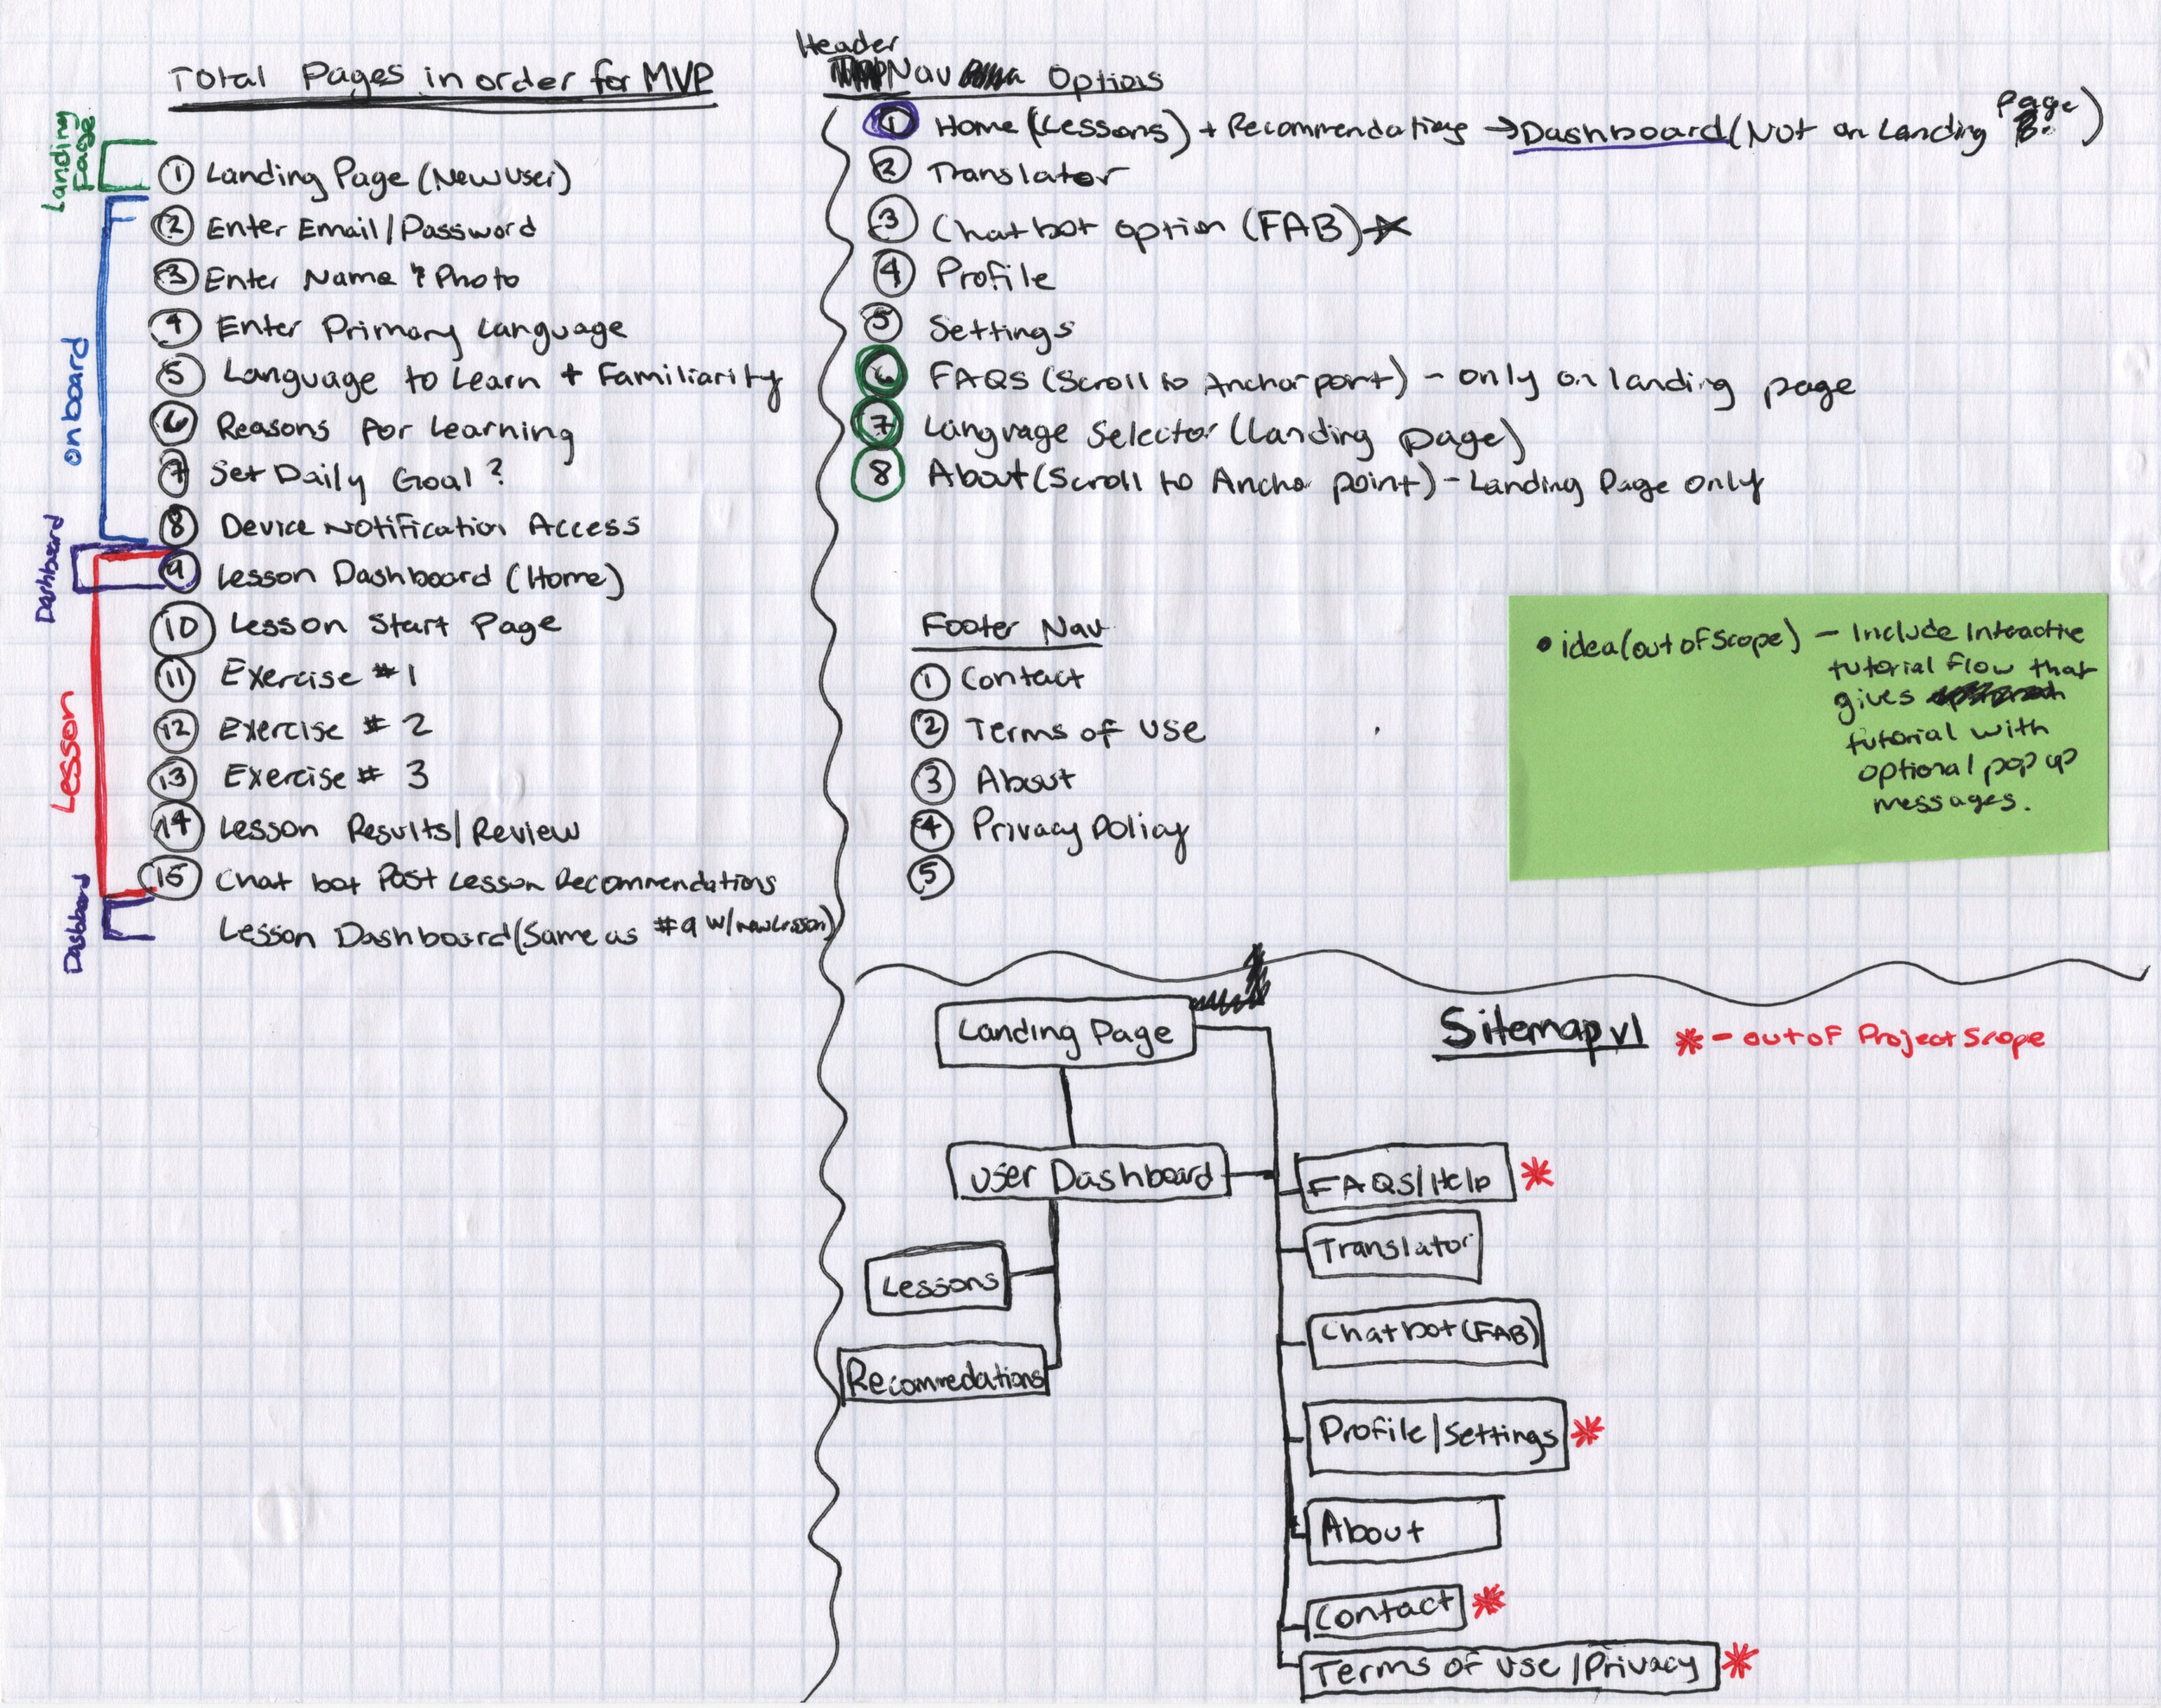 Total Pages in order for MVP
Landing Page
① Landing Page (New User)
onboard
② Enter Email/Password
③ Enter Name & Photo
④ Enter Primary Language
⑤ Language to Learn + Familiarity
⑥ Reasons for Learning
⑦ Set Daily Goal?
⑧ Device Notification Access
Dashboard
⑨ Lesson Dashboard (Home)
Lesson
⑩ Lesson Start Page
⑪ Exercise #1
⑫ Exercise # 2
⑬ Exercise # 3
⑭ Lesson Results/Review
⑮ Chat bot Post Lesson Recommendations
Dashboard
Lesson Dashboard (Same as #9 w/new Lesson)
Header
Nav Options
① Home (Lessons) + Recommendations → Dashboard (Not on Landing Page)
② Translator
③ Chatbot option (FAB)
④ Profile
⑤ Settings
⑥ FAQS (Scroll to Anchor port) - only on landing page
⑦ Language Selector (Landing page)
⑧ About (Scroll to Ancho point) - Landing Page only
Footer Nav
① Contact
② Terms of Use
③ About
④ Privacy Policy
⑤
• idea (out of scope) - Include Interactive
tutorial flow that
gives
tutorial with
optional pop up
messages.
Sitemap v1
* - out of Project Scope
Landing Page
User Dashboard
Lessons
Recommedations
FAQS/Help *
Translator
Chatbot (FAB)
Profile/Settings *
About
Contact *
Terms of Use/Privacy *